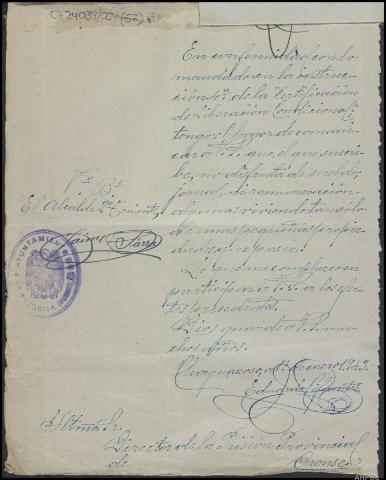 C-24039/004(52)
En conformidad con lo
mandado en la instruc-
ción 4ª de la Certificación
de Liberación Condicional,
tengo el honor de comuni-
car a V.I. que, el que suscri-
be, no disfruta de sueldo,
jornal, ni remuneración
alguna; viviendo tan solo
de unas pequeñas propie-
dades que posee.
Lo que me complazco en
participar a V.I. a los efec-
tos procedentes.
Dios guarde a V.I. mu-
chos años.
enero 1.943.
Vº Bº
El Alcalde
AYUNTAMIENTO
Iltmo. Sr.
Director de la Prisión Provincial
de Orense